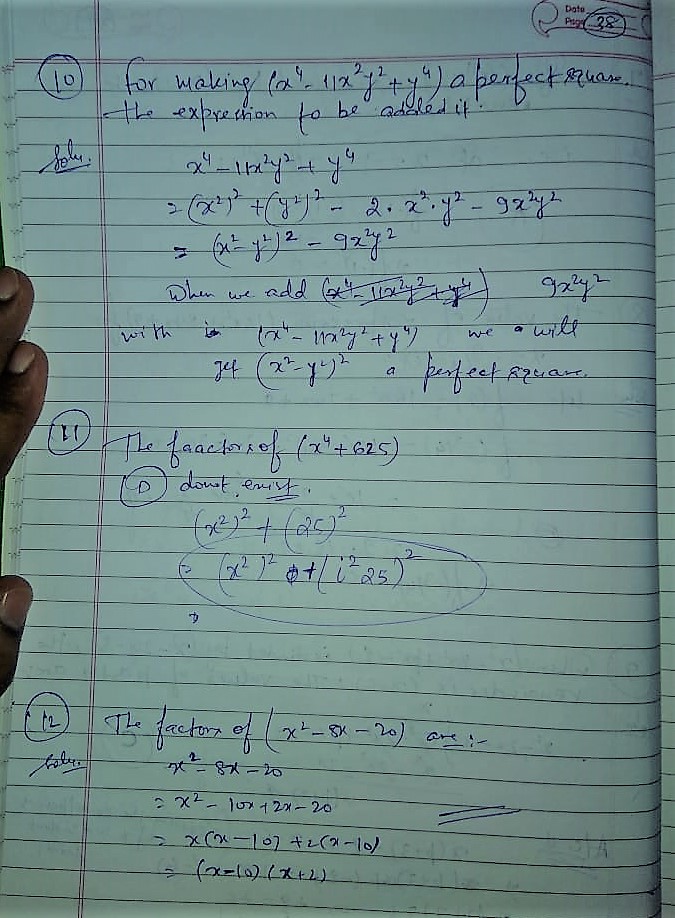 Date
Page 38
10 for making (x⁴ - 11x²y² + y⁴) a perfect square.
the expression to be added it.
Solu. x⁴ - 11x²y² + y⁴
= (x²)² + (y²)² - 2. x². y² - 9x²y²
= (x² - y²)² - 9x²y²
When we add (x⁴ - 11x²y² + y⁴) 9x²y²
with (x⁴ - 11x²y² + y⁴) we will
get (x² - y²)² a perfect square.
11 The faactors of (x⁴ + 625)
D donot exist.
(x²)² + (25)²
= (x²)² + (i² 25)²
⇒
12 The factors of (x² - 8x - 20) are :-
Solu. x² - 8x - 20
= x² - 10x + 2x - 20
= x(x - 10) + 2(x - 10)
= (x - 10) (x + 2)